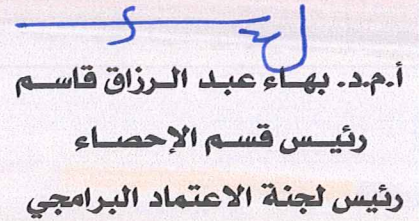 أ.م.د. بهاء عبد الرزاق قاسم
رئيس قسم الإحصاء
رئيس لجنة الاعتماد البرامجي